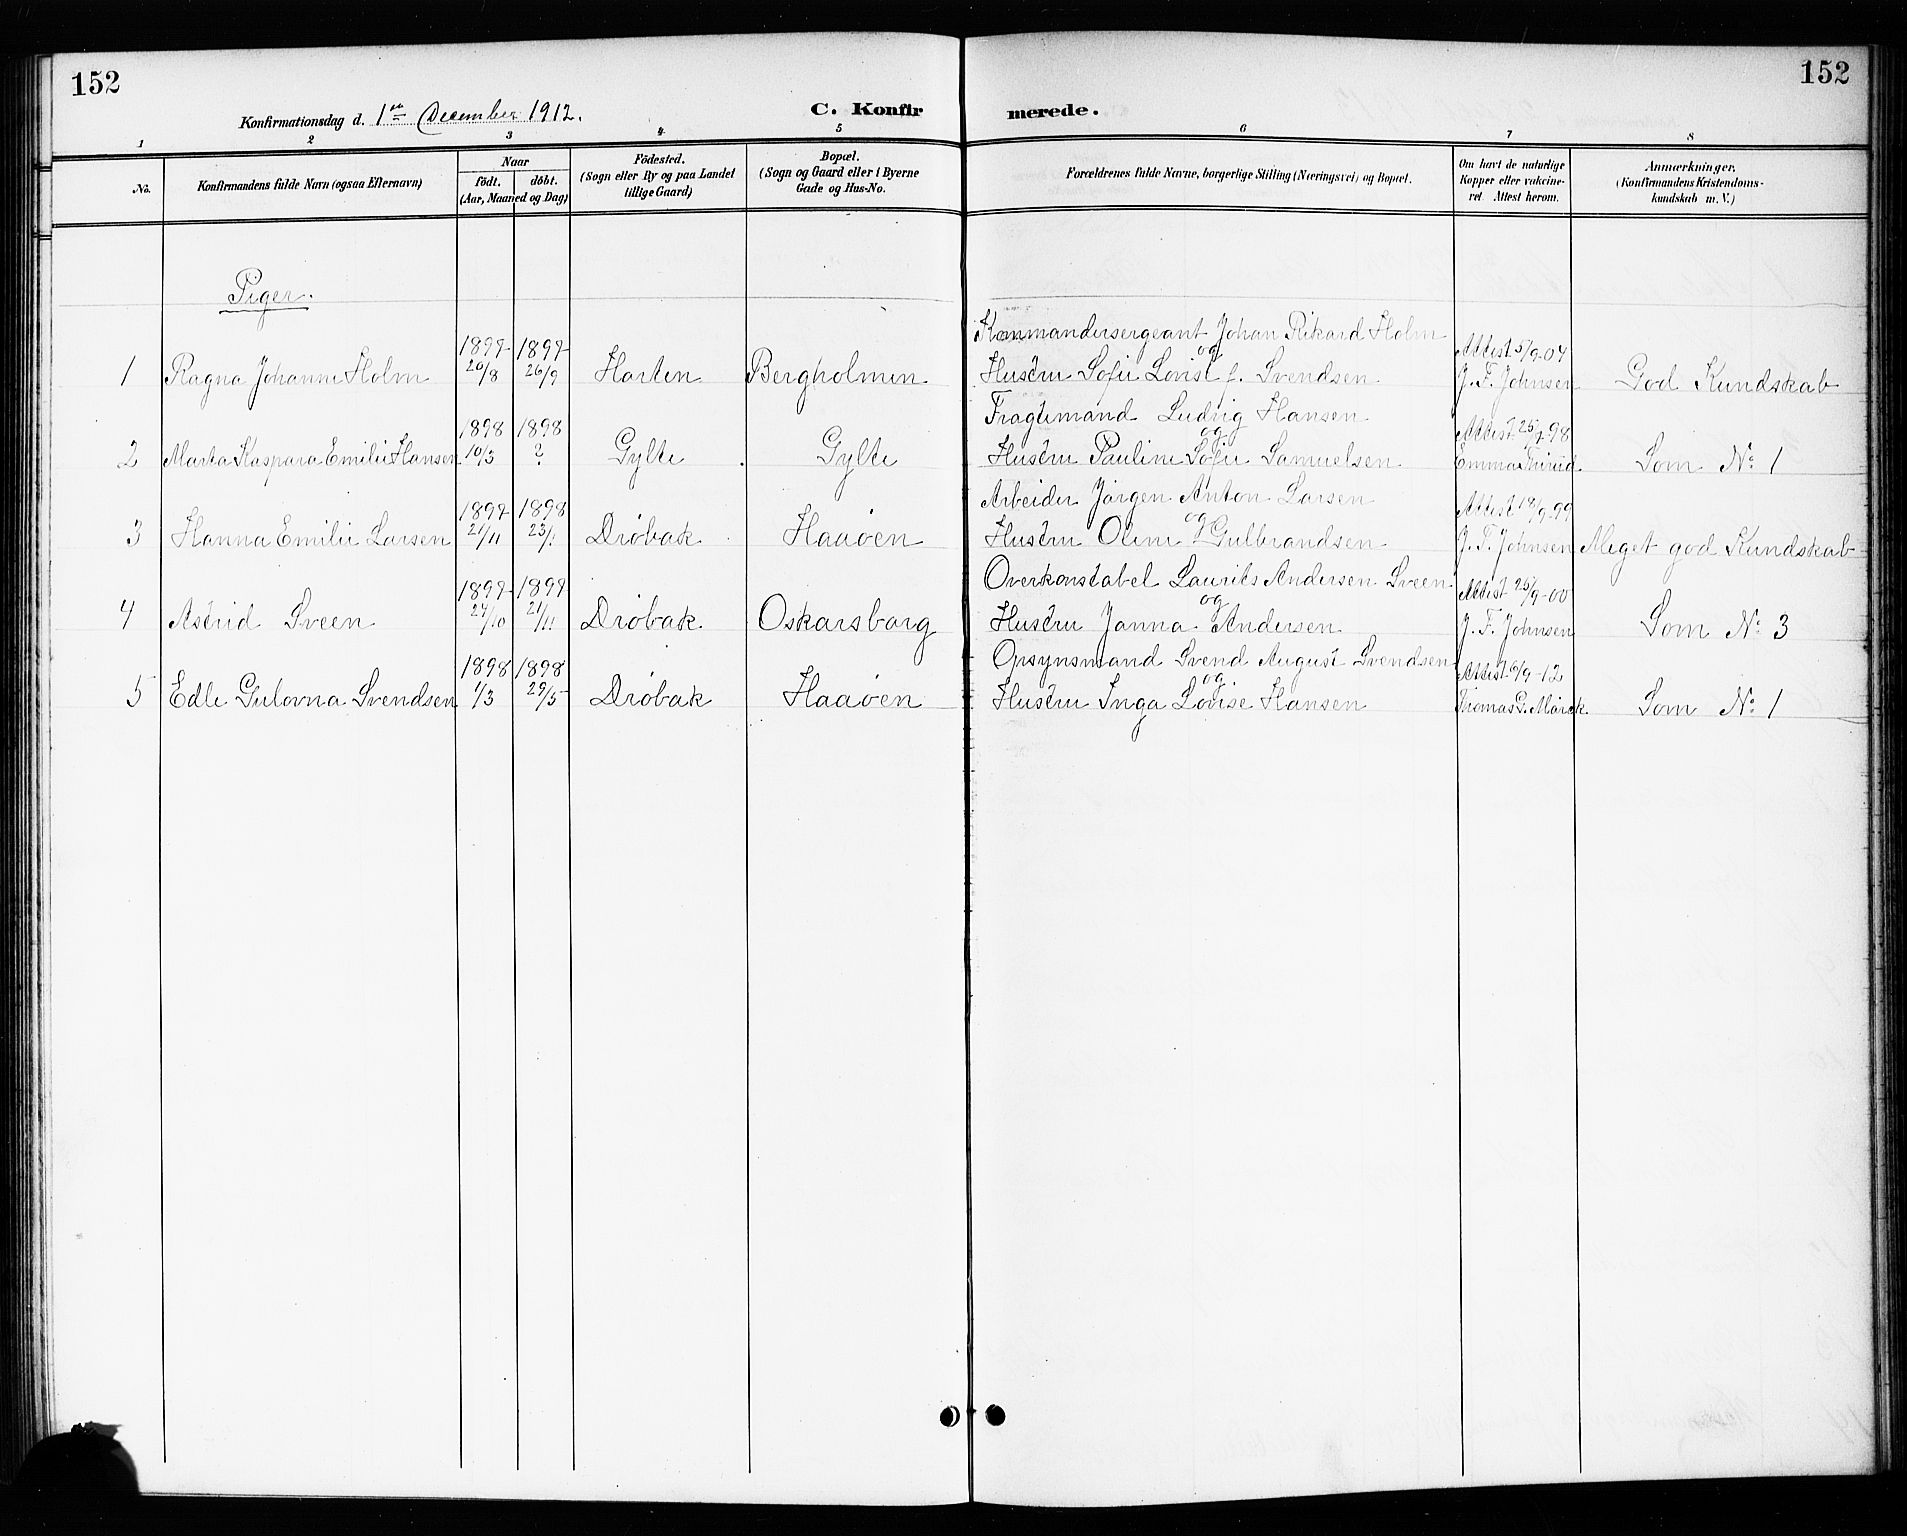 152
152
Konfirmationsdag d. 1ste December 1912.
C. Konfir
merede.
1 2 3 4 5 6 7 8
No.
Konfirmandens fulde Navn (ogsaa Efternavn)
Naar
födt. döbt.
(Aar, Maaned og Dag)
Födested.
(Sogn eller By og paa Landet
tillige Gaard)
Bopæl.
(Sogn og Gaard eller i Byerne
Gade og Hus-No.
Forældrenes fulde Navne, borgerlige Stilling (Næringsvei) og Bopæl.
Om havt de naturlige
Kopper eller vaccine-
ret. Attest herom.
Anmærkninger,
(Konfirmandens Kristendoms-
kundskab m. V.)
Piger.
1897 1897 Kommandersergeant Johan Rikard Holm
og Attest 5/9-04
1 Ragna Johanne Holm 20/8 26/9 Horten Bergholmen Hustru Sofie Lovise f. Svendsen J. F. Johnsen God Kundskab
1898 1898 Fragtemand Ludvig Hansen
og Attest 98
2 Marta Kaspara Emilie Hansen 10/3 ? Gylte Gylte Hustru Pauline Sofie Samuelsen Emma Som No 1
1897 1898 Arbeider Jørgen Anton Larsen
og Attest 18/9-99
3 Hanna Emilie Larsen 21/11 23/1 Drøbak Haaøen Hustru Oline Gulbrandsen J. F. Johnsen Meget god Kundskab
1897 1897 Overkonstabel Laurits Andersen Sveen
og Attest 25/9-00
4 Astrid Sveen 24/10 21/11 Drøbak Oskarsborg Hustru Janna Andersen J. F. Johnsen Som No 3
1898 1898 Opsynsmand Svend August Svendsen
og Attest 6/9-12
5 Edle Gulovna Svendsen 4/3 29/5 Drøbak Haaøen Hustru Inga Lovise Hansen Thomas G. Mörck Som No 1